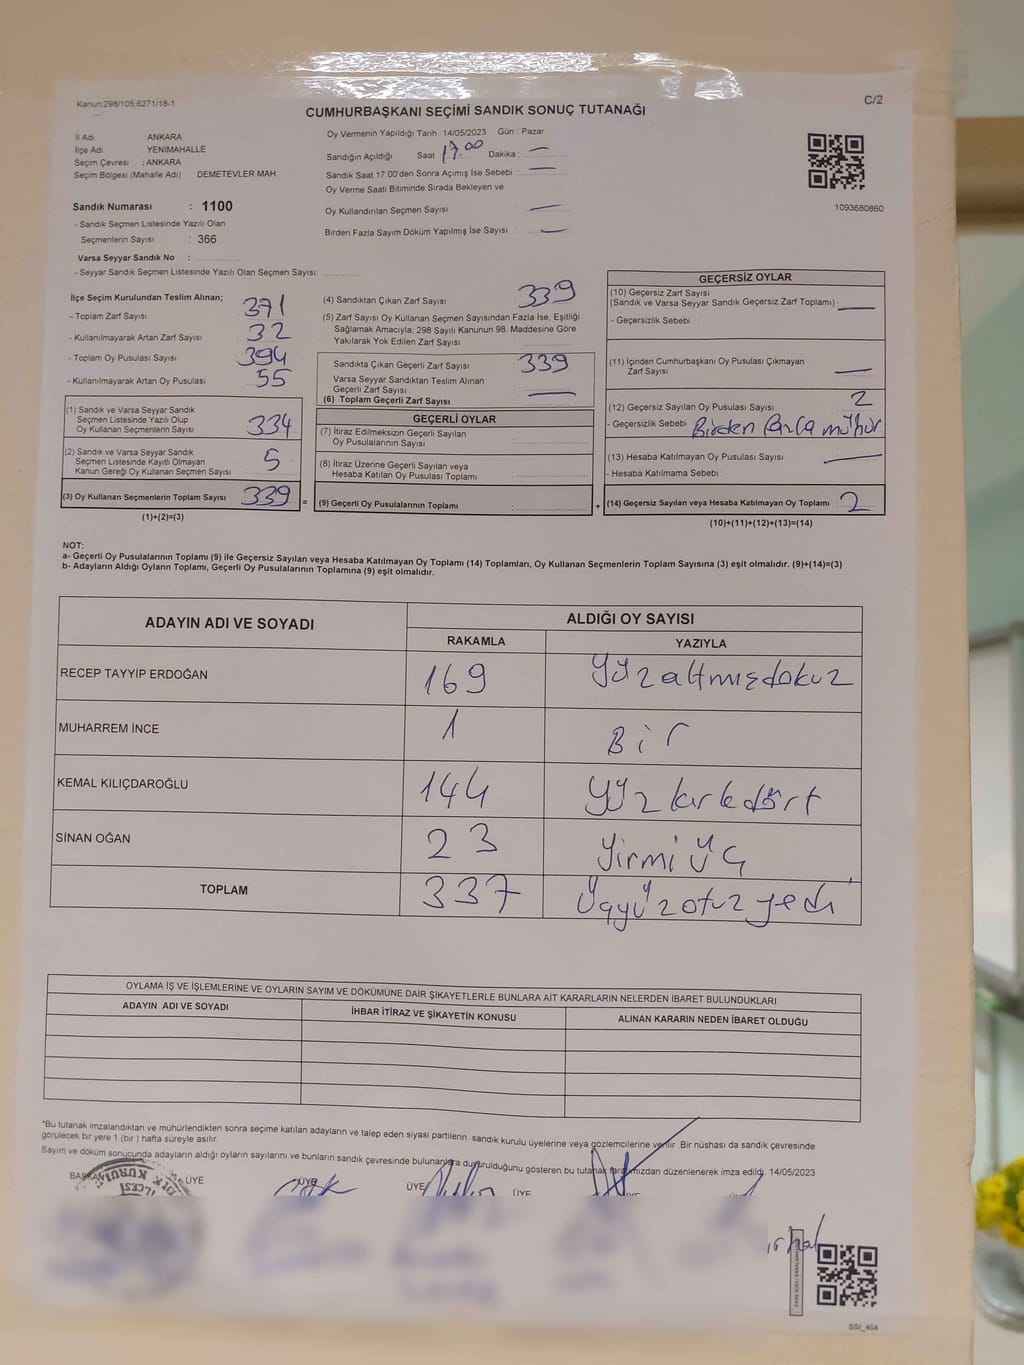 Kanun:298/105,6271/18-1
C/2
CUMHURBAŞKANI SEÇİMİ SANDIK SONUÇ TUTANAĞI
İl Adı ANKARA
İlçe Adı : YENİMAHALLE
Seçim Çevresi : ANKARA
Seçim Bölgesi (Mahalle Adı) DEMETEVLER MAH.
Sandık Numarası : 1100
- Sandık Seçmen Listesinde Yazılı Olan
Seçmenlerin Sayısı : 366
Varsa Seyyar Sandık No :
- Seyyar Sandık Seçmen Listesinde Yazılı Olan Seçmen Sayısı:
Oy Vermenin Yapıldığı Tarih 14/05/2023 Gün : Pazar
Sandığın Açıldığı Saat 17.00 Dakika : —
Sandık Saat 17:00'den Sonra Açımış İse Sebebi : —
Oy Verme Saati Bitiminde Sırada Bekleyen ve
Oy Kullandırılan Seçmen Sayısı : —
Birden Fazla Sayım Döküm Yapılmış İse Sayısı : —
1093680860
İlçe Seçim Kurulundan Teslim Alınan;
- Toplam Zarf Sayısı 371
- Kullanılmayarak Artan Zarf Sayısı 32
- Toplam Oy Pusulası Sayısı 394
- Kullanılmayarak Artan Oy Pusulası 55
(1) Sandık ve Varsa Seyyar Sandık
Seçmen Listesinde Yazılı Olup
Oy Kullanan Seçmenlerin Sayısı 334
(2) Sandık ve Varsa Seyyar Sandık
Seçmen Listesinde Kayıtlı Olmayan
Kanun Gereği Oy Kullanan Seçmen Sayısı 5
(3) Oy Kullanan Seçmenlerin Toplam Sayısı 339 =
(1)+(2)=(3)
(4) Sandıktan Çıkan Zarf Sayısı : 339
(5) Zarf Sayısı Oy Kullanan Seçmen Sayısından Fazla İse, Eşitliği
Sağlamak Amacıyla, 298 Sayılı Kanunun 98. Maddesine Göre
Yakılarak Yok Edilen Zarf Sayısı :
Sandıkta Çıkan Geçerli Zarf Sayısı : 339
Varsa Seyyar Sandıktan Teslim Alınan
Geçerli Zarf Sayısı : —
(6) Toplam Geçerli Zarf Sayısı :
GEÇERLİ OYLAR
(7) İtiraz Edilmeksizin Geçerli Sayılan
Oy Pusulalarının Sayısı :
(8) İtiraz Üzerine Geçerli Sayılan veya
Hesaba Katılan Oy Pusulası Toplamı :
(9) Geçerli Oy Pusulalarının Toplamı : +
GEÇERSİZ OYLAR
(10) Geçersiz Zarf Sayısı
(Sandık ve Varsa Seyyar Sandık Geçersiz Zarf Toplamı) : —
- Geçersizlik Sebebi :
(11) İçinden Cumhurbaşkanı Oy Pusulası Çıkmayan
Zarf Sayısı : —
(12) Geçersiz Sayılan Oy Pusulası Sayısı : 2
- Geçersizlik Sebebi : Birden fazla mühür
(13) Hesaba Katılmayan Oy Pusulası Sayısı : —
- Hesaba Katılmama Sebebi :
(14) Geçersiz Sayılan veya Hesaba Katılmayan Oy Toplamı : 2
(10)+(11)+(12)+(13)=(14)
NOT:
a- Geçerli Oy Pusulalarının Toplamı (9) ile Geçersiz Sayılan veya Hesaba Katılmayan Oy Toplamı (14) Toplamları, Oy Kullanan Seçmenlerin Toplam Sayısına (3) eşit olmalıdır. (9)+(14)=(3)
b- Adayların Aldığı Oyların Toplamı, Geçerli Oy Pusulalarının Toplamına (9) eşit olmalıdır.
ADAYIN ADI VE SOYADI ALDIĞI OY SAYISI
RAKAMLA YAZIYLA
RECEP TAYYİP ERDOĞAN 169 Yüzaltmışdokuz
MUHARREM İNCE 1 Bir
KEMAL KILIÇDAROĞLU 144 Yüzkırkdört
SİNAN OĞAN 23 Yirmi Üç
TOPLAM 337 Üçyüzotuzyedi
OYLAMA İŞ VE İŞLEMLERİNE VE OYLARIN SAYIM VE DÖKÜMÜNE DAİR ŞİKAYETLERLE BUNLARA AİT KARARLARIN NELERDEN İBARET BULUNDUKLARI
ADAYIN ADI VE SOYADI İHBAR İTİRAZ VE ŞİKAYETİN KONUSU ALINAN KARARIN NEDEN İBARET OLDUĞU
"Bu tutanak imzalandıktan ve mühürlendikten sonra seçime katılan adayların ve talep eden siyasi partilerin sandık kurulu üyelerine veya gözlemcilerine verilir. Bir nüshası da sandık çevresinde
görülecek bir yere 1 (bir) hafta süreyle asılır.
Sayım ve döküm sonucunda adayların aldığı oyların sayılarını ve bunların sandık çevresinde bulunanlara duyurulduğunu gösteren bu tutanak tarafımızdan düzenlenerek imza edildi. 14/05/2023
BAŞKAN ÜYE ÜYE ÜYE ÜYE
SSI_404